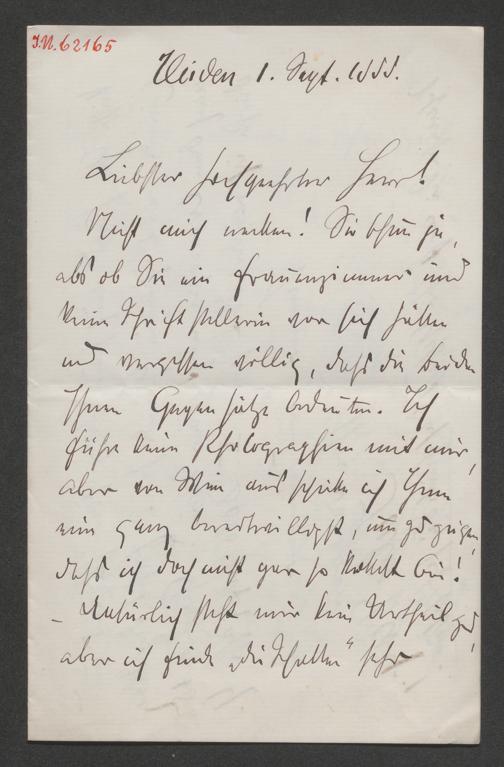 I.N. 62165
Heiden 1. Sept. 1888.
Liebster hochgeehrter Herr!
Nicht mich necken! Sie thun ja,
als ob Sie ein Frauenzimmer und
keine Schriftstellerin vor sich hätten
und vergessen völlig, daß die beiden
Ihnen Gegensätze bedeuten. Ich
führe keine Photographien mit mir,
aber von Wien aus schicke ich Ihnen
eine ganz bereitwilligst, um zu zeigen,
daß ich doch nicht gar so kokett bin!
– Natürlich steht mir kein Urtheil zu,
aber ich finde „die Schatten" sehr